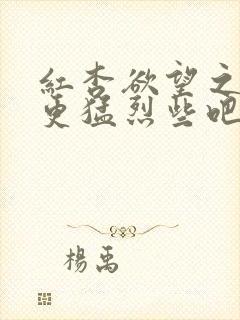 红杏欲望之
更猛烈些吧
杨禹